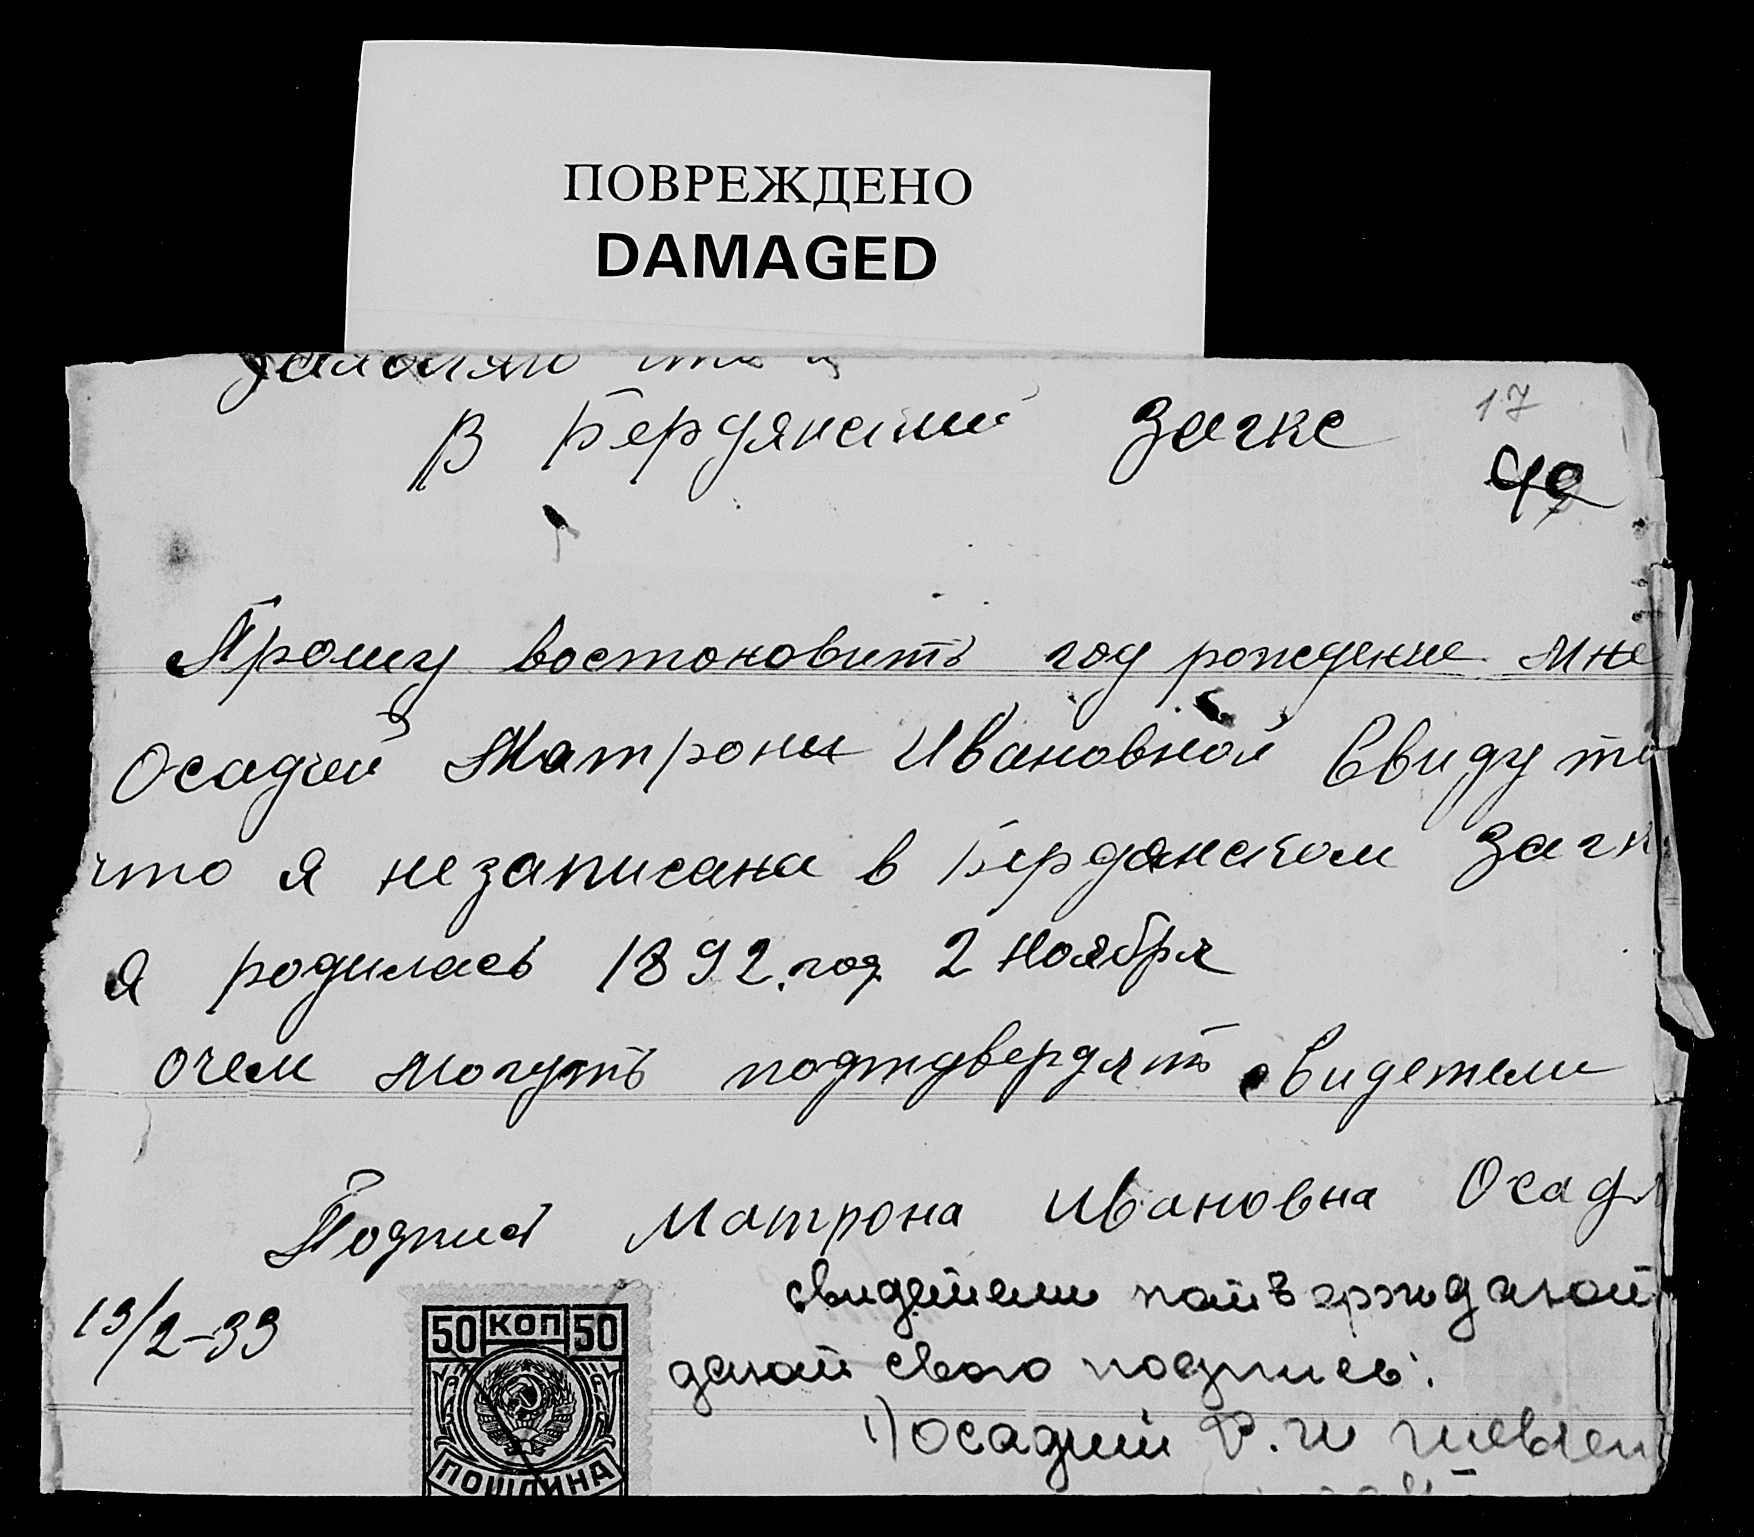 ПОВРЕЖДЕНО
DAMAGED
В Бердянский Загкс
17
Прошу востоновить год рождение мне
Осадчей Матроны Ивановной Ввиду
что я незаписана в Бердянском Загк
Я родилась 1892 год 2 ноября
очем могуть подтдвердять свидетели
Подпись Матрона Ивановна Осад
19/2-33
50 КОП 50
ПОШЛИНА
свидетели
свою подпись:
1) Осадчий Ф. И